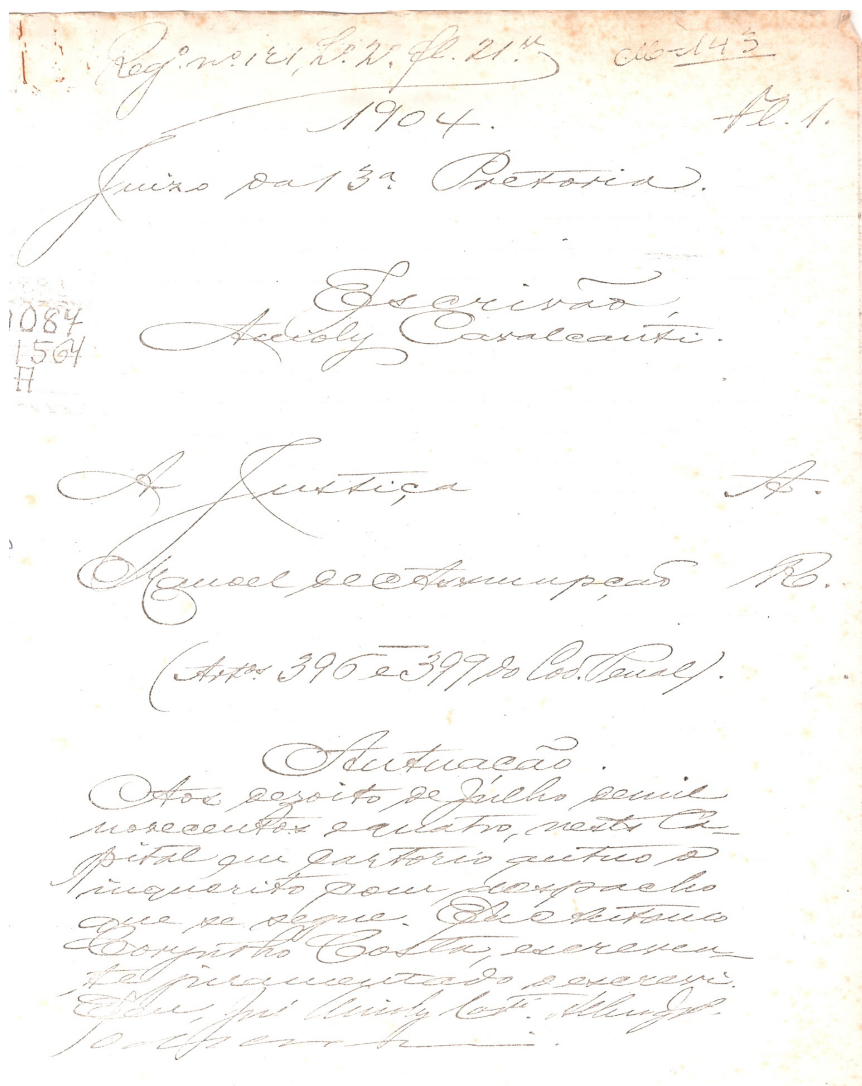 Reg.º nº 121, Lº 2º fl. 21
1904. fl. 1.
Juizo da 13ª Pretoria.
Escrivão,
Accioly Cavalcanti.
1084
1564
A
A Justiça A.
Manoel de Assumpção R.
(Artos 396 e 399 do Cod. Penal).
Autuação.
Aos dezoito de Julho de mil
novecentos e quatro, nesta Ca-
pital em Cartorio autuo o
inquerito com despacho
que se segue. Eu Antonio
Coryntho Costa, escreven-
te juramentado o escrevi.
E eu, José Accioly